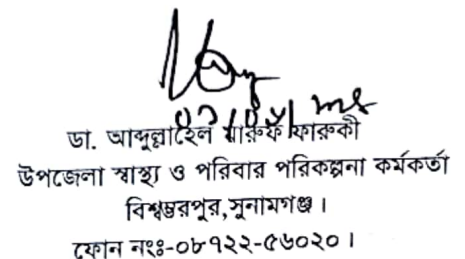 ডা. আব্দুল্লাহেল মারুফ ফারুকী
উপজেলা স্বাস্থ্য ও পরিবার পরিকল্পনা কর্মকর্তা
বিশ্বম্ভরপুর,সুনামগঞ্জ।
ফোন নংঃ-০৮৭২২-৫৬০২০।